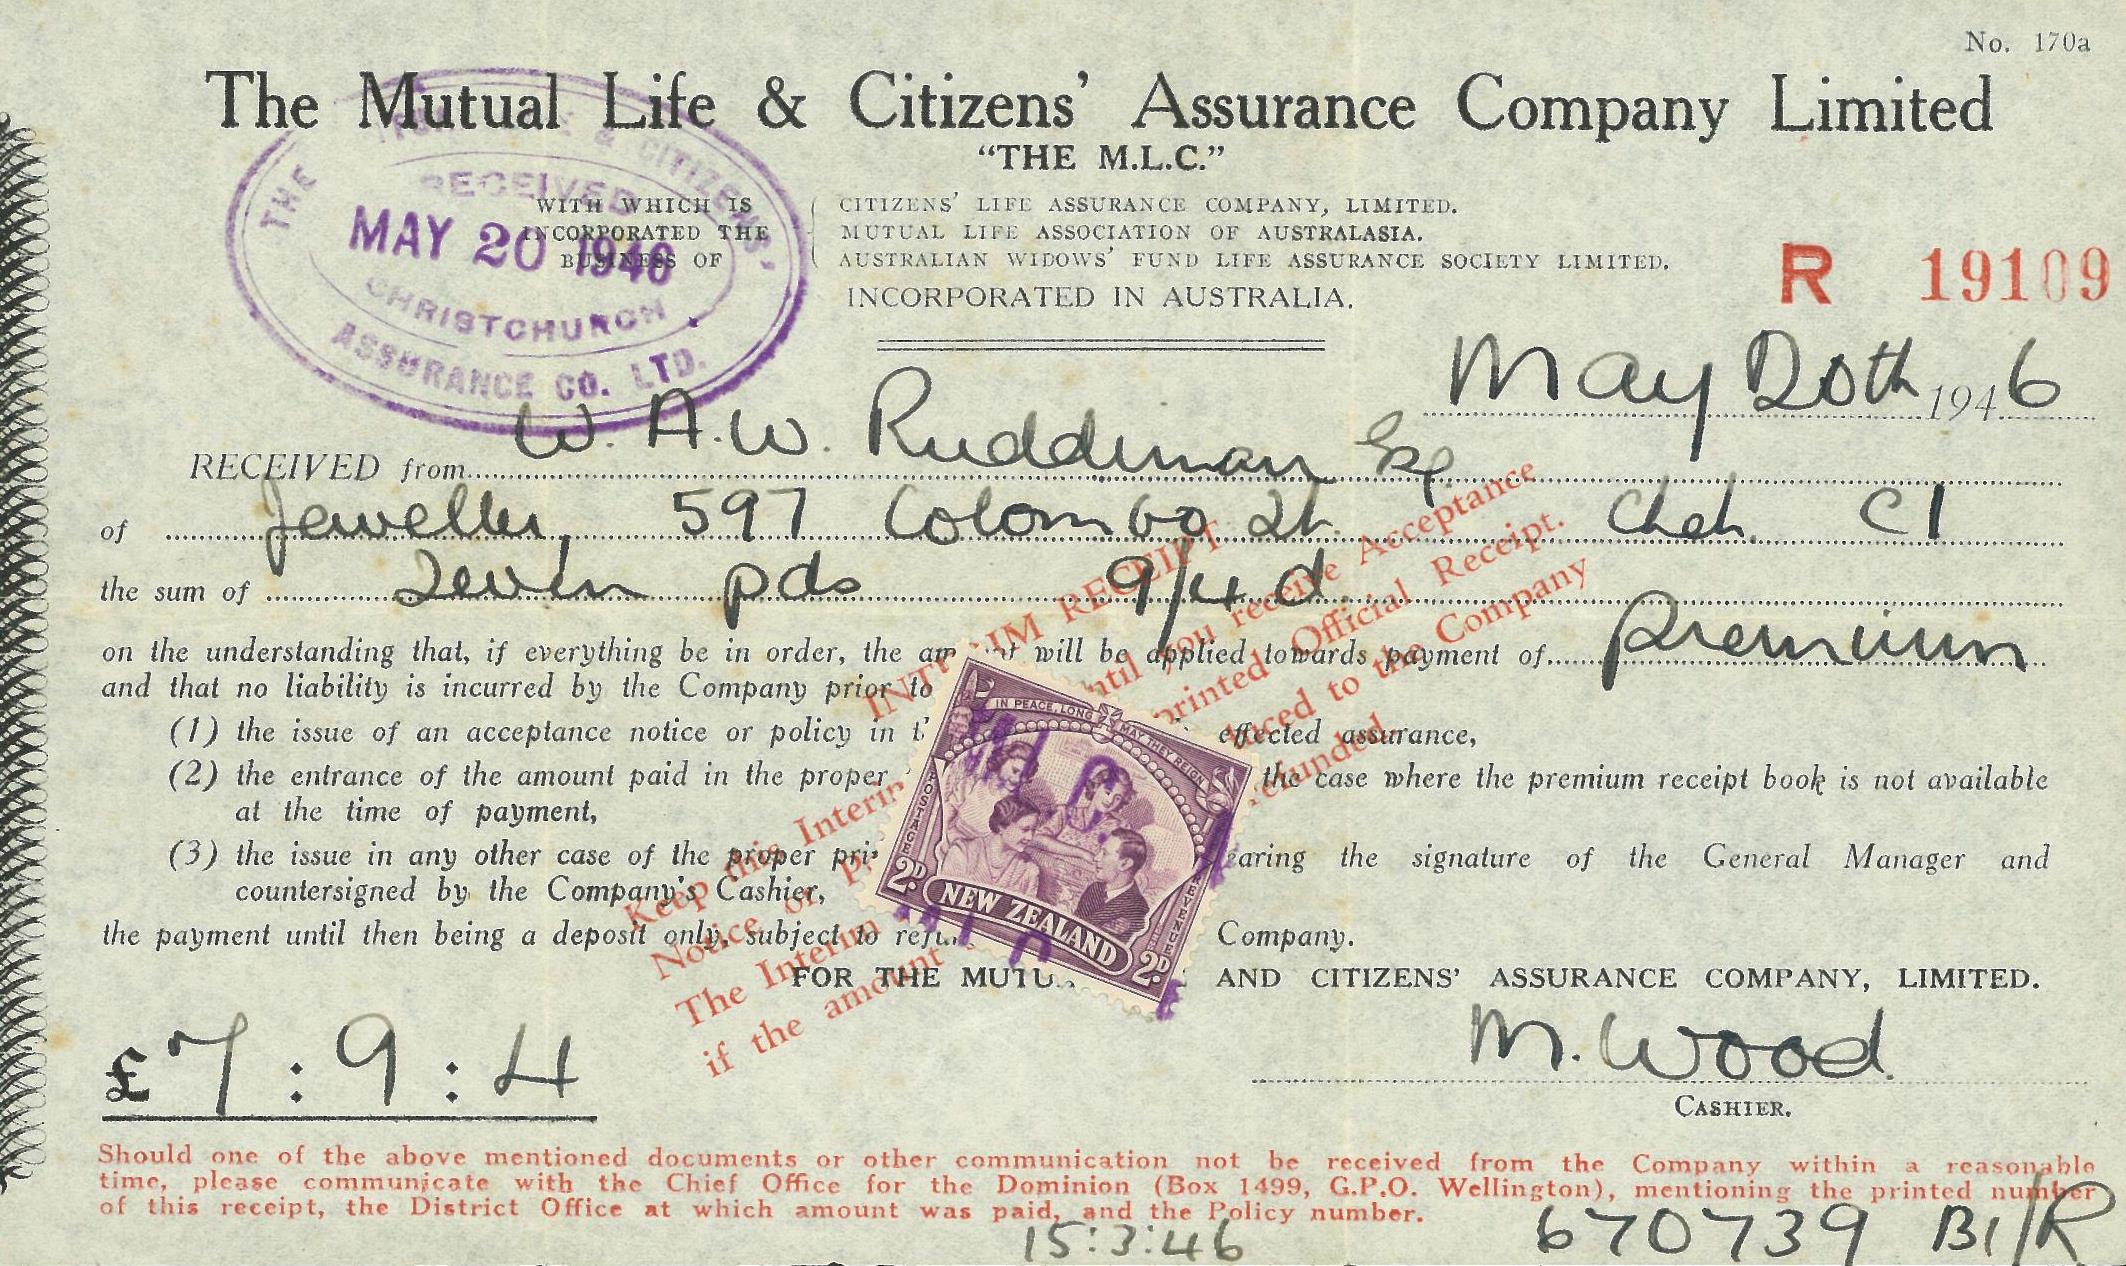 No. 170a
The Mutual Life & Citizens' Assurance Company Limited
"THE M.L.C."
WITH WHICH IS
INCORPORATED THE
BUSINESS OF
CITIZENS' LIFE ASSURANCE COMPANY, LIMITED.
MUTUAL LIFE ASSOCIATION OF AUSTRALASIA.
AUSTRALIAN WIDOWS' FUND LIFE ASSURANCE SOCIETY LIMITED.
INCORPORATED IN AUSTRALIA.
R 19109
THE & CITIZENS'
RECEIVED
MAY 20 1946
CHRISTCHURCH
ASSURANCE CO. LTD.
May 20th 1946
RECEIVED from W. A. W. Ruddiman Esq
of Jeweller, 597 Colombo St. Chch. C1
the sum of Seven pds 9/4d
on the understanding that, if everything be in order, the will be applied towards payment of premium
and that no liability is incurred by the Company prior to
(1) the issue of an acceptance notice or policy in effected assurance,
(2) the entrance of the amount paid in the proper the case where the premium receipt book is not available
at the time of payment,
(3) the issue in any other case of the proper the signature of the General Manager and
countersigned by the Company's Cashier,
the payment until then being a deposit only, subject to Company.
FOR THE AND CITIZENS' ASSURANCE COMPANY, LIMITED.
INTERIM RECEIPT
Keep this Interim until you receive Acceptance
Notice or printed Official Receipt.
The Interim to the Company
if the amount refunded.
IN PEACE, LONG MAY THEY REIGN
POSTAGE REVENUE
2D NEW ZEALAND 2D
£7:9:4
M. Wood
CASHIER.
Should one of the above mentioned documents or other communication not be received from the Company within a reasonable
time, please communicate with the Chief Office for the Dominion (Box 1499, G.P.O. Wellington), mentioning the printed number
of this receipt, the District Office at which amount was paid, and the Policy number.
15:3:46
670739 B1/R